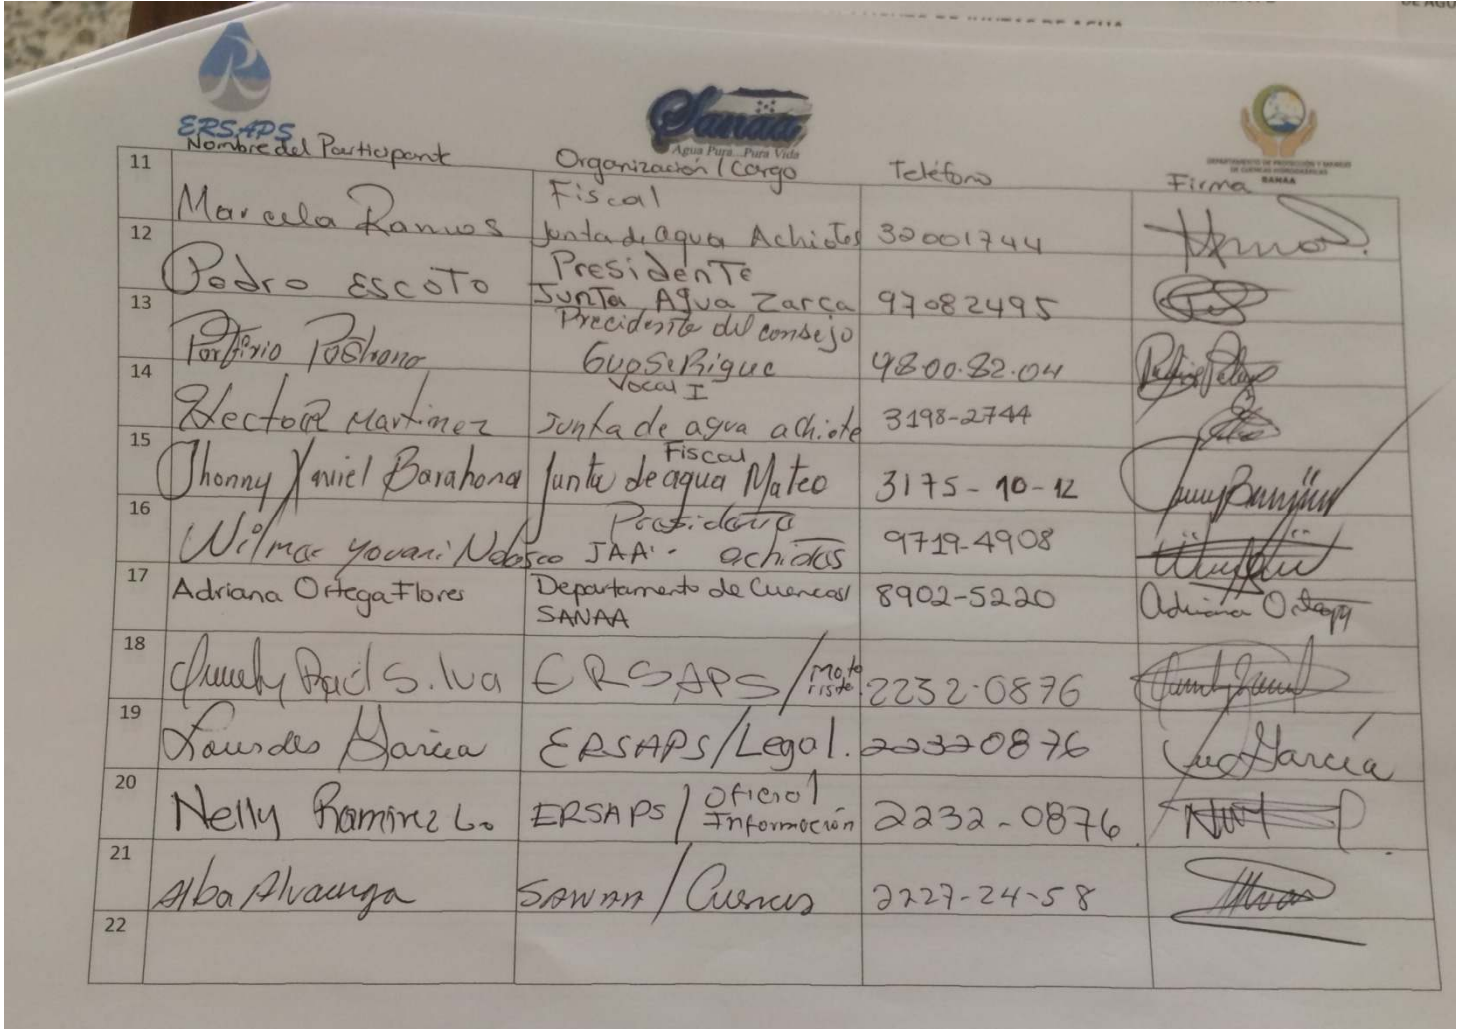 DE AGU
ERSAPS
Sanaa
Agua Pura...Pura Vida
DEPARTAMENTO DE PROTECCIÓN Y MANEJO
DE CUENCAS HIDROGRÁFICAS
SANAA
Nombre del Participante Organización / Cargo Teléfono Firma
11 Marcela Ramos Fiscal
Junta de agua Achiotes 32001744
12 Pedro Escoto Presidente
Junta Agua Zarca 97082495
13 Porfirio Precidente del consejo
98.00.82.04
14 Hector Martinez Vocal I
Junta de agua achiote 3198-2744
15 Jhonny Yaniel Barahona Fiscal
Junta de agua Mateo 3175-10-12
16 Wilmar Yovani
JAA achiotes 9719-4908
17 Adriana Ortega Flores Departamento de Cuencas/
SANAA 8902-5220 Adriana Ortega
18 Raúl Silva ERSAPS / Moto
rista 2232-0876
19 Lourdes Garcia ERSAPS/Legal. 22320876 García
20 Nelly Ramirez L. ERSAPS / Oficial
Información 2232-0876
21 Alba Alvarenga SANAA / Cuencas 2227-24-58
22